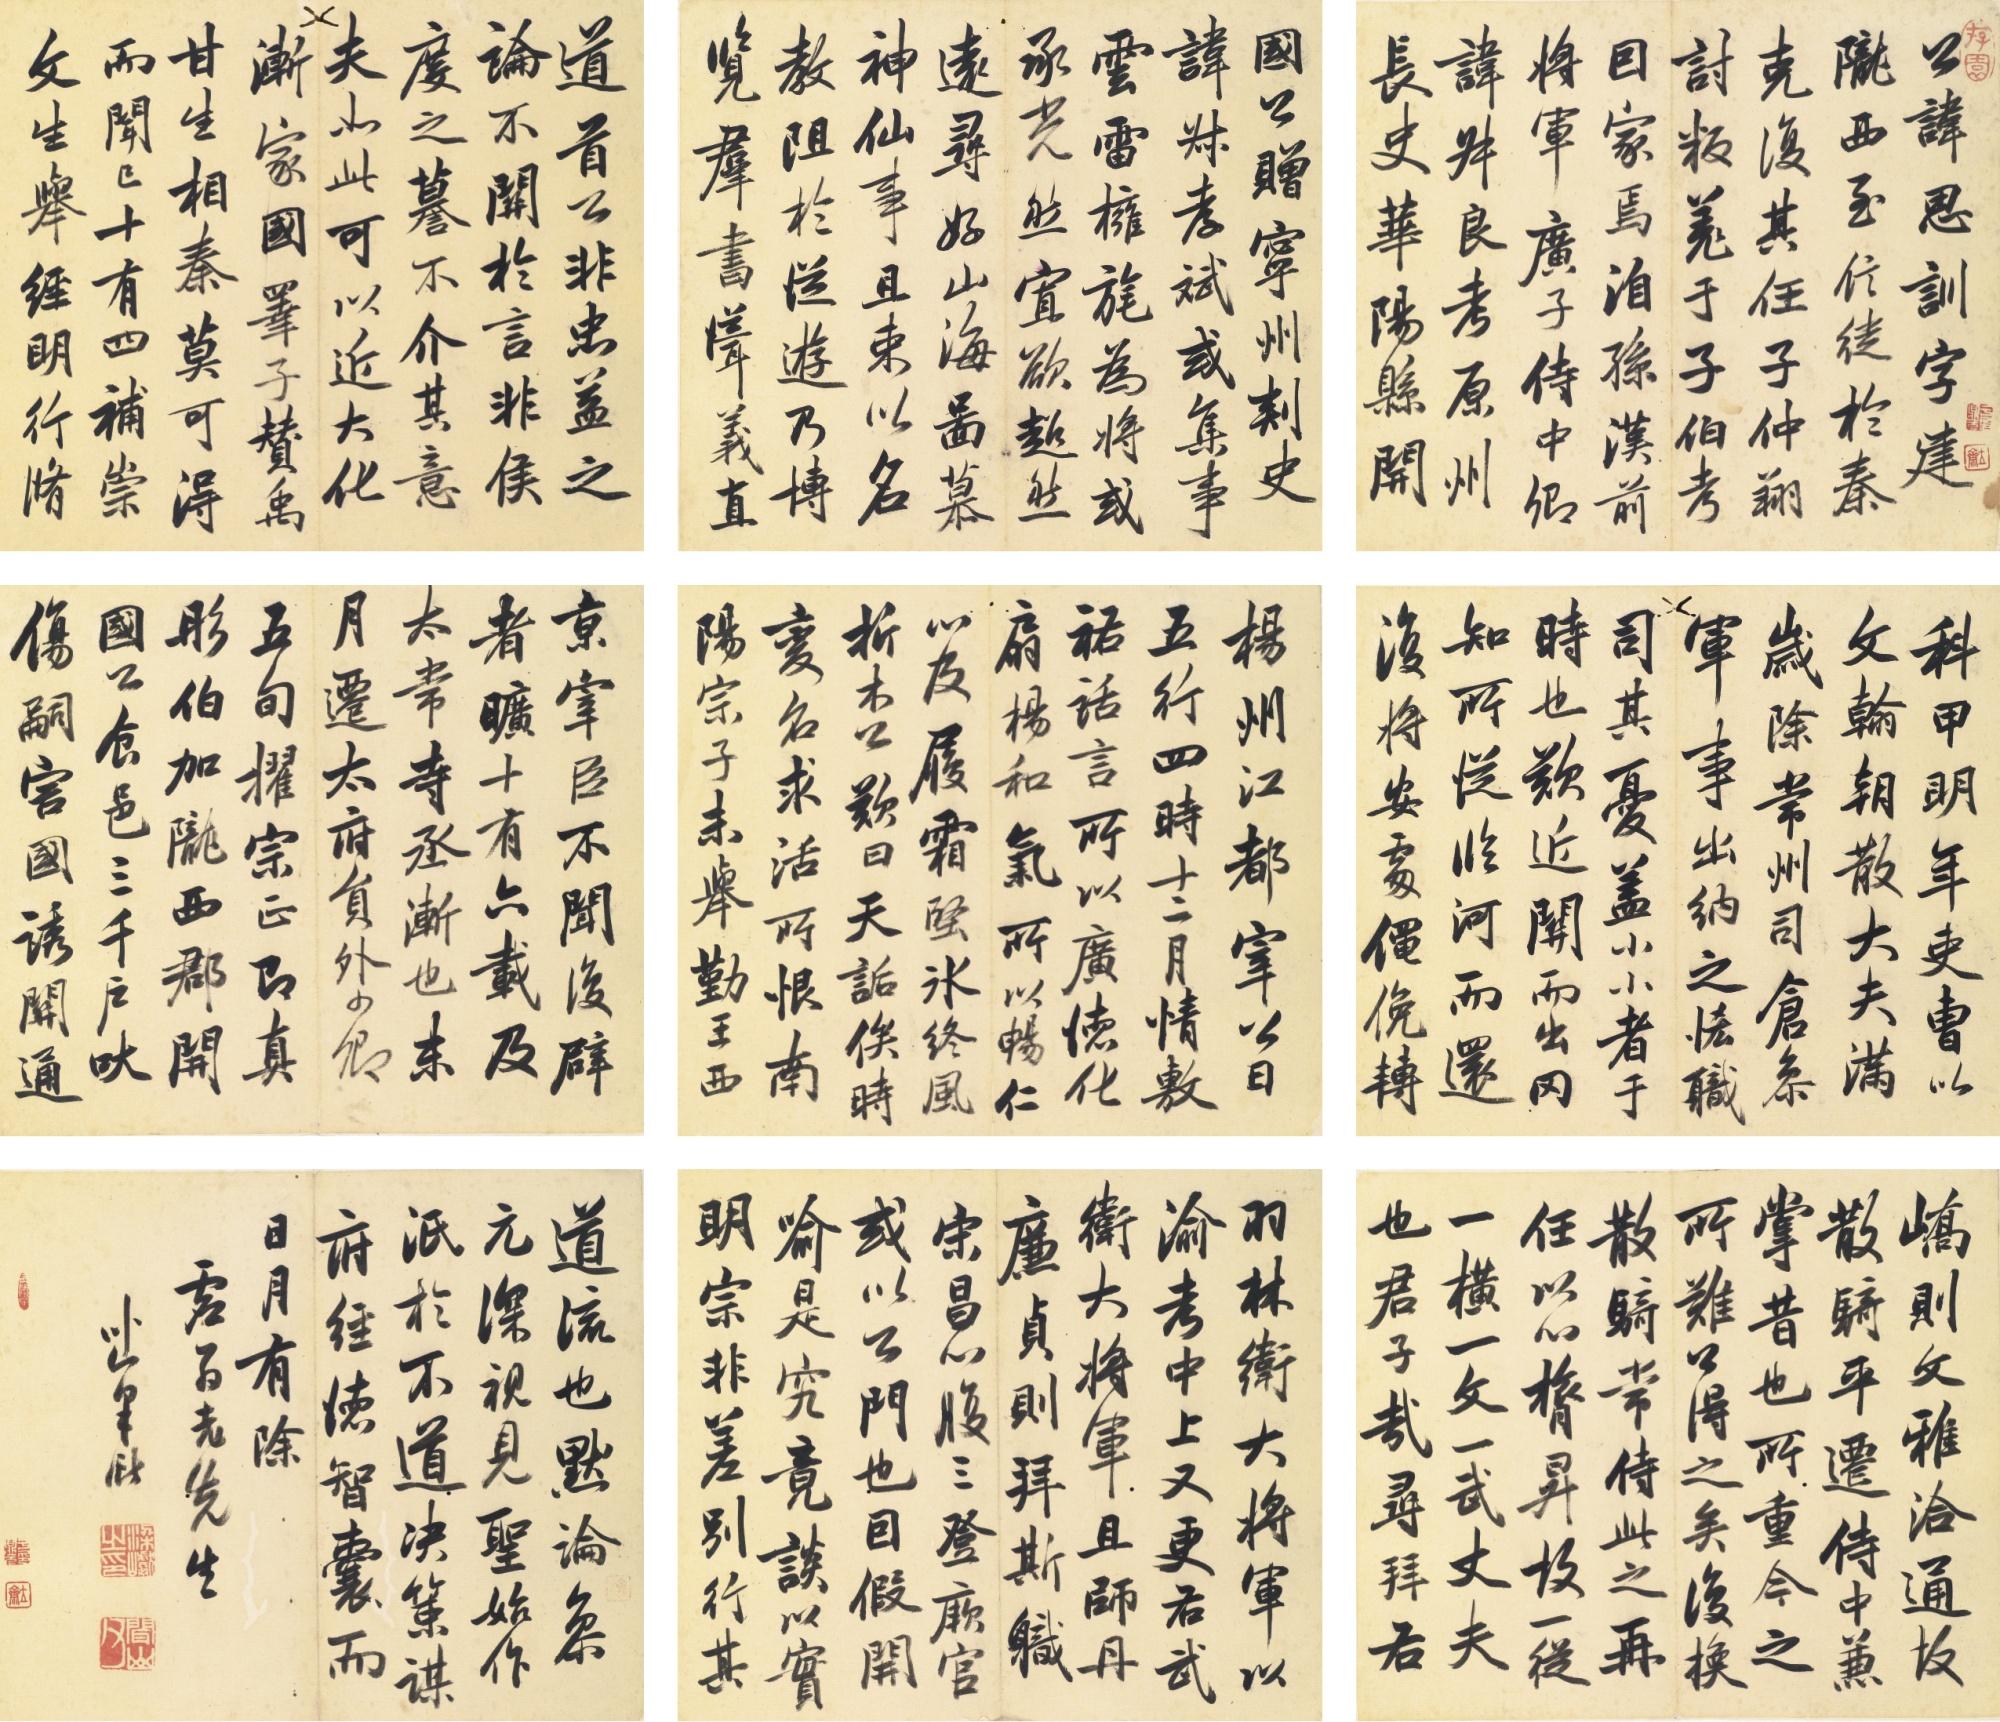 公諱思訓字建
隴西至信徒於秦
克復其任子仲翔
討叛羌于子伯考
因家焉洎孫漢前
將軍廣子侍中卿
諱昇良考原州
長史華陽縣開
國公贈寧州刺史
諱𣂏孝斌或集事
雲雷擁旄為將或
承光然宜欲超然
遠尋好山海啚慕
神仙事且束以名
教阻於從遊乃博
覽羣書精義直
道首公非忠益之
論不關於言非侯
度之蕃不介其意
夫如此可以近大化
漸家國睪子賛禹
甘生相秦莫可得
而聞已十有四補崇
文生舉經明行脩
科甲明年吏曹以
文翰朝散大夫滿
歲除常州司倉叅
軍事出納之恡職
司其憂蓋小小者于
時也歎近關而出罔
知所從臨河而還
復將安處僶俛轉
楊州江都宰公曰
五行四時十二月情敷
祏話言所以廣徳化
扇楊和氣所以暢仁
心及履霜堅氷終風
折木公歎曰天詬俟時
変名求活所恨南
陽宗子未舉勤王西
京宰臣不聞復辟
者曠十有六載及
太常寺丞漸也未
月遷太府員外少卿
五旬擢宗正即真
彤伯加隴西郡開
國公食邑三千户吠
傷嗣害國誘開通
嶠則文雅洽通故
散騎平遷侍中兼
掌昔也所重今之
所難公得之矣復換
散騎常侍此之再
任以心膂昇故一從
一橫一文一武丈夫
也君子哉尋拜右
羽林衛大將軍以
渝考中上又更右武
衛大將軍且師丹
廉貞則拜斯軄
宋昌心腹三登厥官
或以公門也因假開
喻是究竟談以實
明宗非差别行其
道流也默論衆
元深視見聖始作
泯於不道决策謀
府經徳智囊而
日月有除
老先生
山梁巘